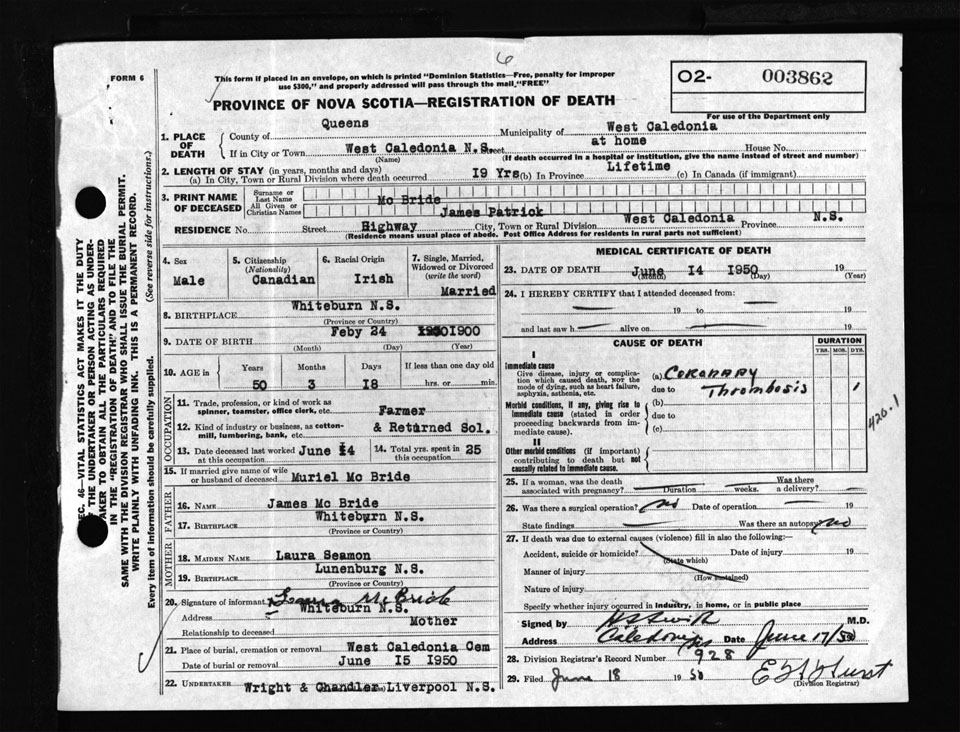 6
FORM 6
This form if placed in an envelope, on which is printed "Dominion Statistics—Free, penalty for improper
use $300," and properly addressed will pass through the mail "FREE"
O2- 003862
For use of the Department only
PROVINCE OF NOVA SCOTIA—REGISTRATION OF DEATH
1. PLACE OF DEATH
County of Queens Municipality of West Caledonia
If in City or Town West Caledonia N.S. Street at home House No.
(Name) (If death occurred in a hospital or institution, give the name instead of street and number)
2. LENGTH OF STAY (in years, months and days)
(a) In City, Town or Rural Division where death occurred 19 Yrs (b) In Province Lifetime (c) In Canada (if immigrant)
3. PRINT NAME OF DECEASED
Surname or Last Name Mc Bride
All Given or Christian Names James Patrick
RESIDENCE No. Street Highway City, Town or Rural Division West Caledonia Province N.S.
(Residence means usual place of abode. Post Office Address for residents in rural parts not sufficient)
4. Sex Male
5. Citizenship (Nationality) Canadian
6. Racial Origin Irish
7. Single, Married, Widowed or Divorced (write the word) Married
8. BIRTHPLACE Whiteburn N.S.
(Province or Country)
9. DATE OF BIRTH Feby 24 1900
(Month) (Day) (Year)
10. AGE in Years Months Days If less than one day old
50 3 18 hrs. or min.
OCCUPATION
11. Trade, profession, or kind of work as
spinner, teamster, office clerk, etc. Farmer
12. Kind of industry or business, as cotton-
mill, lumbering, bank, etc. & Returned Sol.
13. Date deceased last worked at this occupation June 14
14. Total yrs. spent in this occupation 25
15. If married give name of wife
or husband of deceased Muriel Mc Bride
FATHER
16. Name James Mc Bride
17. Birthplace Whiteburn N.S.
(Province or Country)
MOTHER
18. Maiden Name Laura Seamon
19. Birthplace Lunenburg N.S.
(Province or Country)
20. Signature of informant Laura McBride
Address Whiteburn N.S.
Relationship to deceased Mother
21. Place of burial, cremation or removal West Caledonia Cem
Date of burial or removal June 15 1950
22. Undertaker Wright & Chandler Liverpool N.S.
MEDICAL CERTIFICATE OF DEATH
23. DATE OF DEATH June 14 1950 19
(Month) (Day) (Year)
24. I HEREBY CERTIFY that I attended deceased from:
19 to 19
and last saw h alive on 19
CAUSE OF DEATH DURATION
YRS. MOS. DYS.
I
Immediate cause
Give disease, injury or compli-
cation which caused death, NOT the
mode of dying, such as heart failure,
asphyxia, asthenia, etc.
(a) CORONARY
due to Thrombosis 1
Morbid conditions, if any, giving rise to
immediate cause (stated in order
proceeding backwards from im-
mediate cause).
(b)
due to
(c)
420.1
II
Other morbid conditions (if important)
contributing to death but not
causally related to immediate cause.
25. If a woman, was the death
associated with pregnancy? Duration weeks. Was there a delivery?
26. Was there a surgical operation? no Date of operation 19
State findings Was there an autopsy no
27. If death was due to external causes (violence) fill in also the following:
Accident, suicide or homicide? Date of injury 19
(State which)
Manner of injury
(How sustained)
Nature of injury
Specify whether injury occurred in industry, in home, or in public place
Signed by M.D.
Address Caledonia NS Date June 17/50
28. Division Registrar's Record Number 928
29. Filed June 18 19 50
(Division Registrar)
SEC. 46—VITAL STATISTICS ACT MAKES IT THE DUTY
OF THE UNDERTAKER OR PERSON ACTING AS UNDER-
TAKER TO OBTAIN ALL THE PARTICULARS REQUIRED
IN THE "REGISTRATION OF DEATH" AND TO FILE THE
SAME WITH THE DIVISION REGISTRAR WHO SHALL ISSUE THE BURIAL PERMIT.
WRITE PLAINLY WITH UNFADING INK. THIS IS A PERMANENT RECORD.
Every item of information should be carefully supplied. (See reverse side for instructions.)